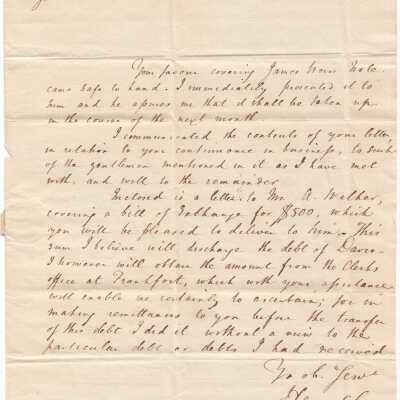 Your favour covering James Weirs Note
came safe to hand. I immediately presented it to
him and he assures me that it shall be taken up
in the course of the next month
I communicated the contents of your letter
in relation to your continuance in business, to such
of the gentlemen mentioned in it as I have met
with, and will to the remainder
Enclosed is a letter to Mr. A. Walker,
covering a bill of Exchange for $500, which
you will be pleased to deliver to him. This
sum I believe will discharge the debt of
I however will obtain the amount from the Clerks
office at Frankfort, which with your assistance
will enable me certainly to ascertain; for in
making remittances to you before the transfer
of this debt I did it without a view to the
particular debt or debts I had received
Yo ob. Serv